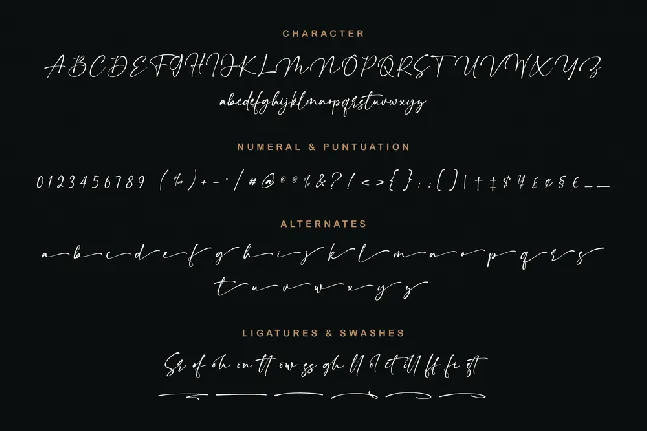 CHARACTER
ABCDEFGHIJKLMNOPQRSTUVWXYZ
abcdefghijklmnopqrstuvwxyz
NUMERAL & PUNTUATION
0123456789 (%)+-·/#@ &?!<>{}:;()|†‡$¥£ §€__
ALTERNATES
a b c d e f g h i j k l m n o p q r s
t u v w x y z
LIGATURES & SWASHES
of oh on tt ow ss gh ll ct ill ff ft